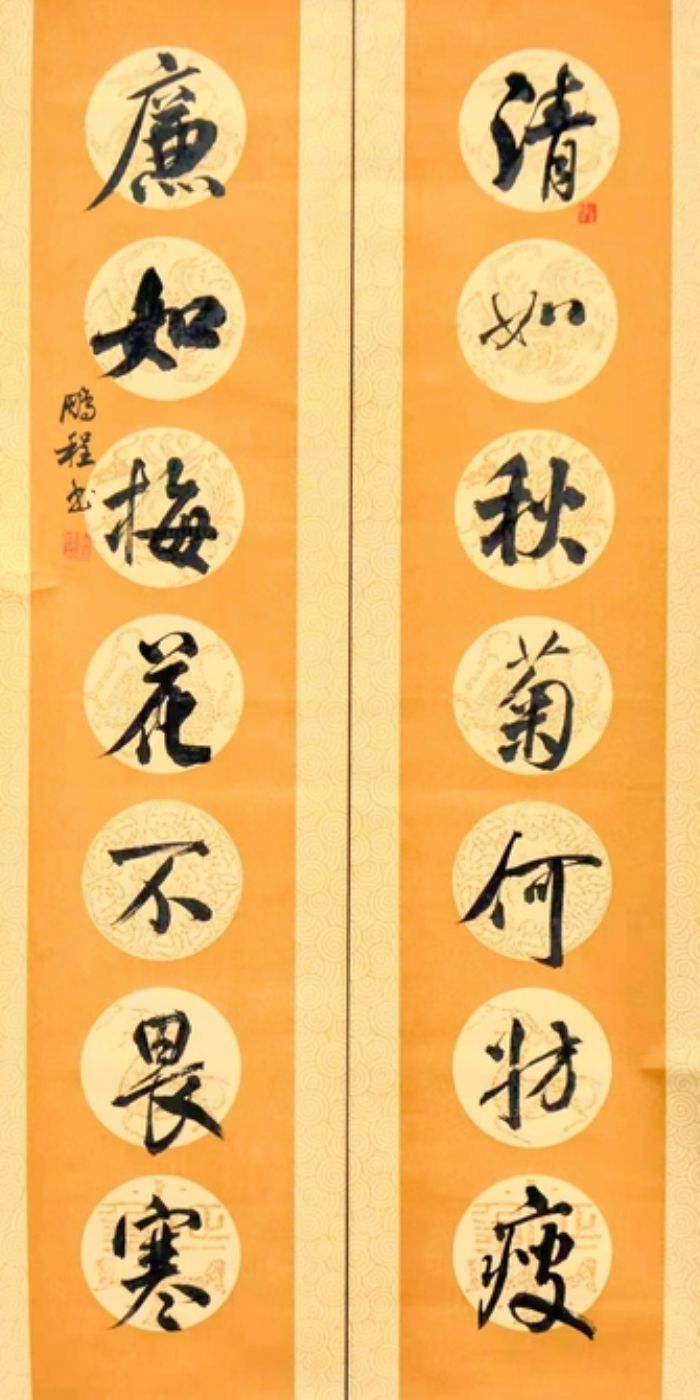 清如秋菊何妨瘦
廉如梅花不畏寒
鵬程书